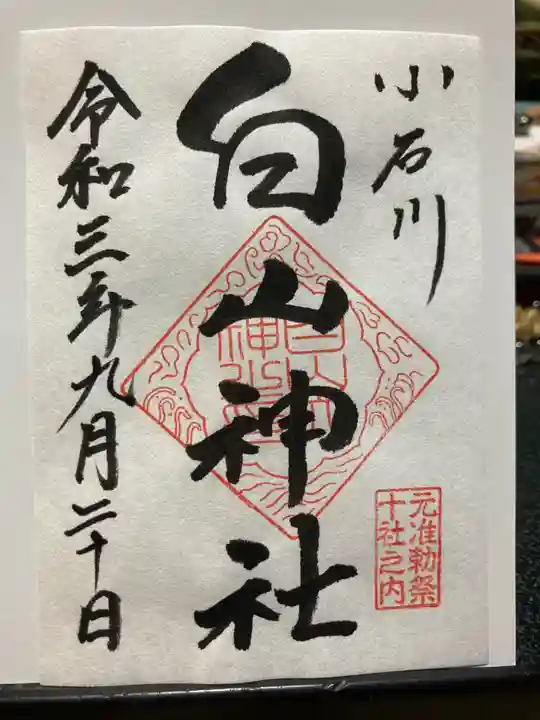 小石川
白山神社
元准勅祭
十社之内
令和三年九月二十日